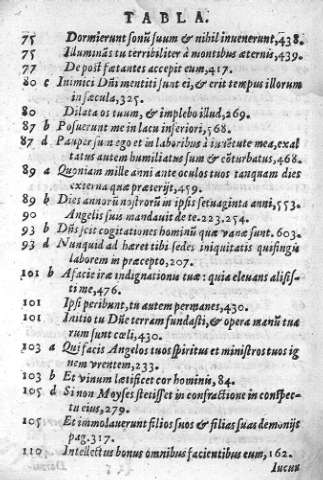 TABLA.
75 Dormierunt sonũ suum & nihil inuenerunt, 438.
75 Illuminãs tu terribiliter à montibus æternis, 439.
77 De post fætantes accepit eum, 417.
80 c Inimici Dñi mentiti sunt ei, & erit tempus illorum
in sæcula, 325.
80 Dilata os tuum, & implebo illud, 269.
87 b Posuerunt me in lacu inferiori, 568.
87 d Pauper sum ego et in laboribus à iuuẽtute mea, exal
tatus autem humiliatus sum & cõturbatus, 468.
89 a Quoniam mille anni ante oculos tuos tanquam dies
externa quæ præterijt, 459.
89 b Dies annorũ nostrorũ in ipsis setuaginta anni, 553.
90 Angelis suis mandauit de te. 223, 254.
93 b Dñs scit cogitationes hominũ quæ vanæ sunt. 603.
93 d Nunquid ad hæret tibi sedes iniquitatis quifingis
laborem in præcepto, 207.
101 b A facie iræ indignationu tuæ : quia eleuans alisis-
time, 476.
101 Ipsi peribunt, tu autem permanes, 430.
101 Initio tu Dñe terram fundasti, & opera manũ tua
rum sunt cœli, 430.
103 a Qui facis Angelos tuos spiritus et ministros tuos ig
nem vrentem, 233.
103 b Et vinum lætificet cor hominis, 84.
105 d Si non Moyses stetisset in confractione in conspe-
ctu eius, 279.
105 Et immolauerunt filios suos & filias suas demonijs
pag. 317.
110 Intellectus bonus omnibus facientibus eum, 162.
Iucun